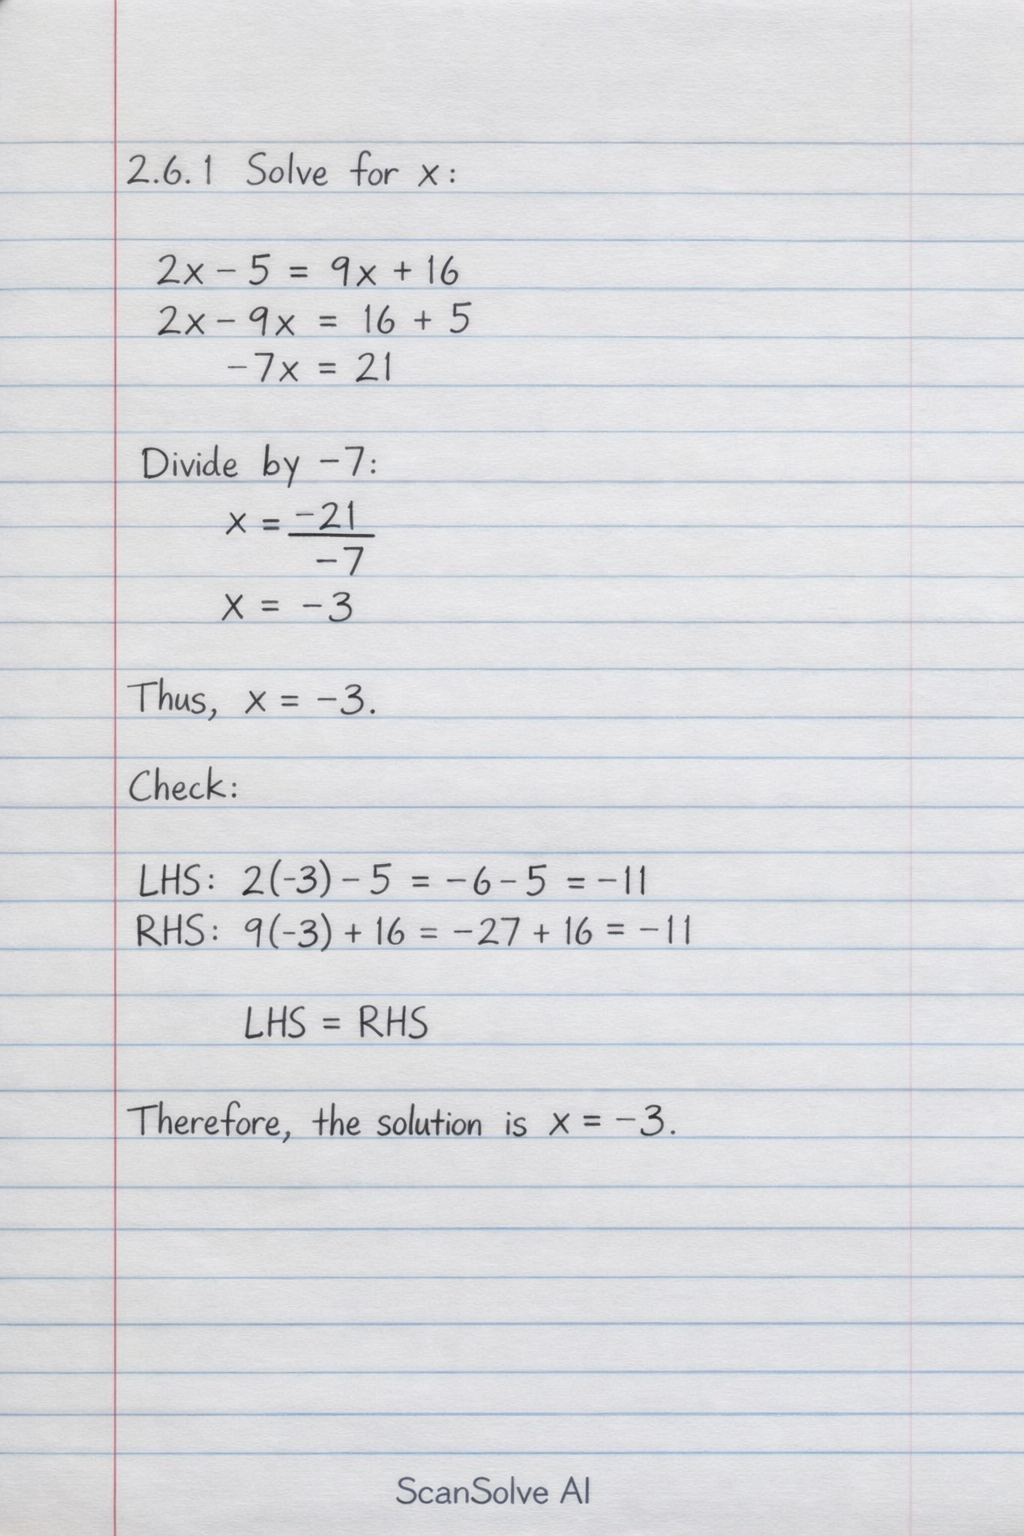 2.6.1 Solve for x:
2x - 5 = 9x + 16
2x - 9x = 16 + 5
-7x = 21
Divide by -7:
x = -21
-7
x = -3
Thus, x = -3.
Check:
LHS: 2(-3) - 5 = -6 - 5 = -11
RHS: 9(-3) + 16 = -27 + 16 = -11
LHS = RHS
Therefore, the solution is x = -3.
ScanSolve AI